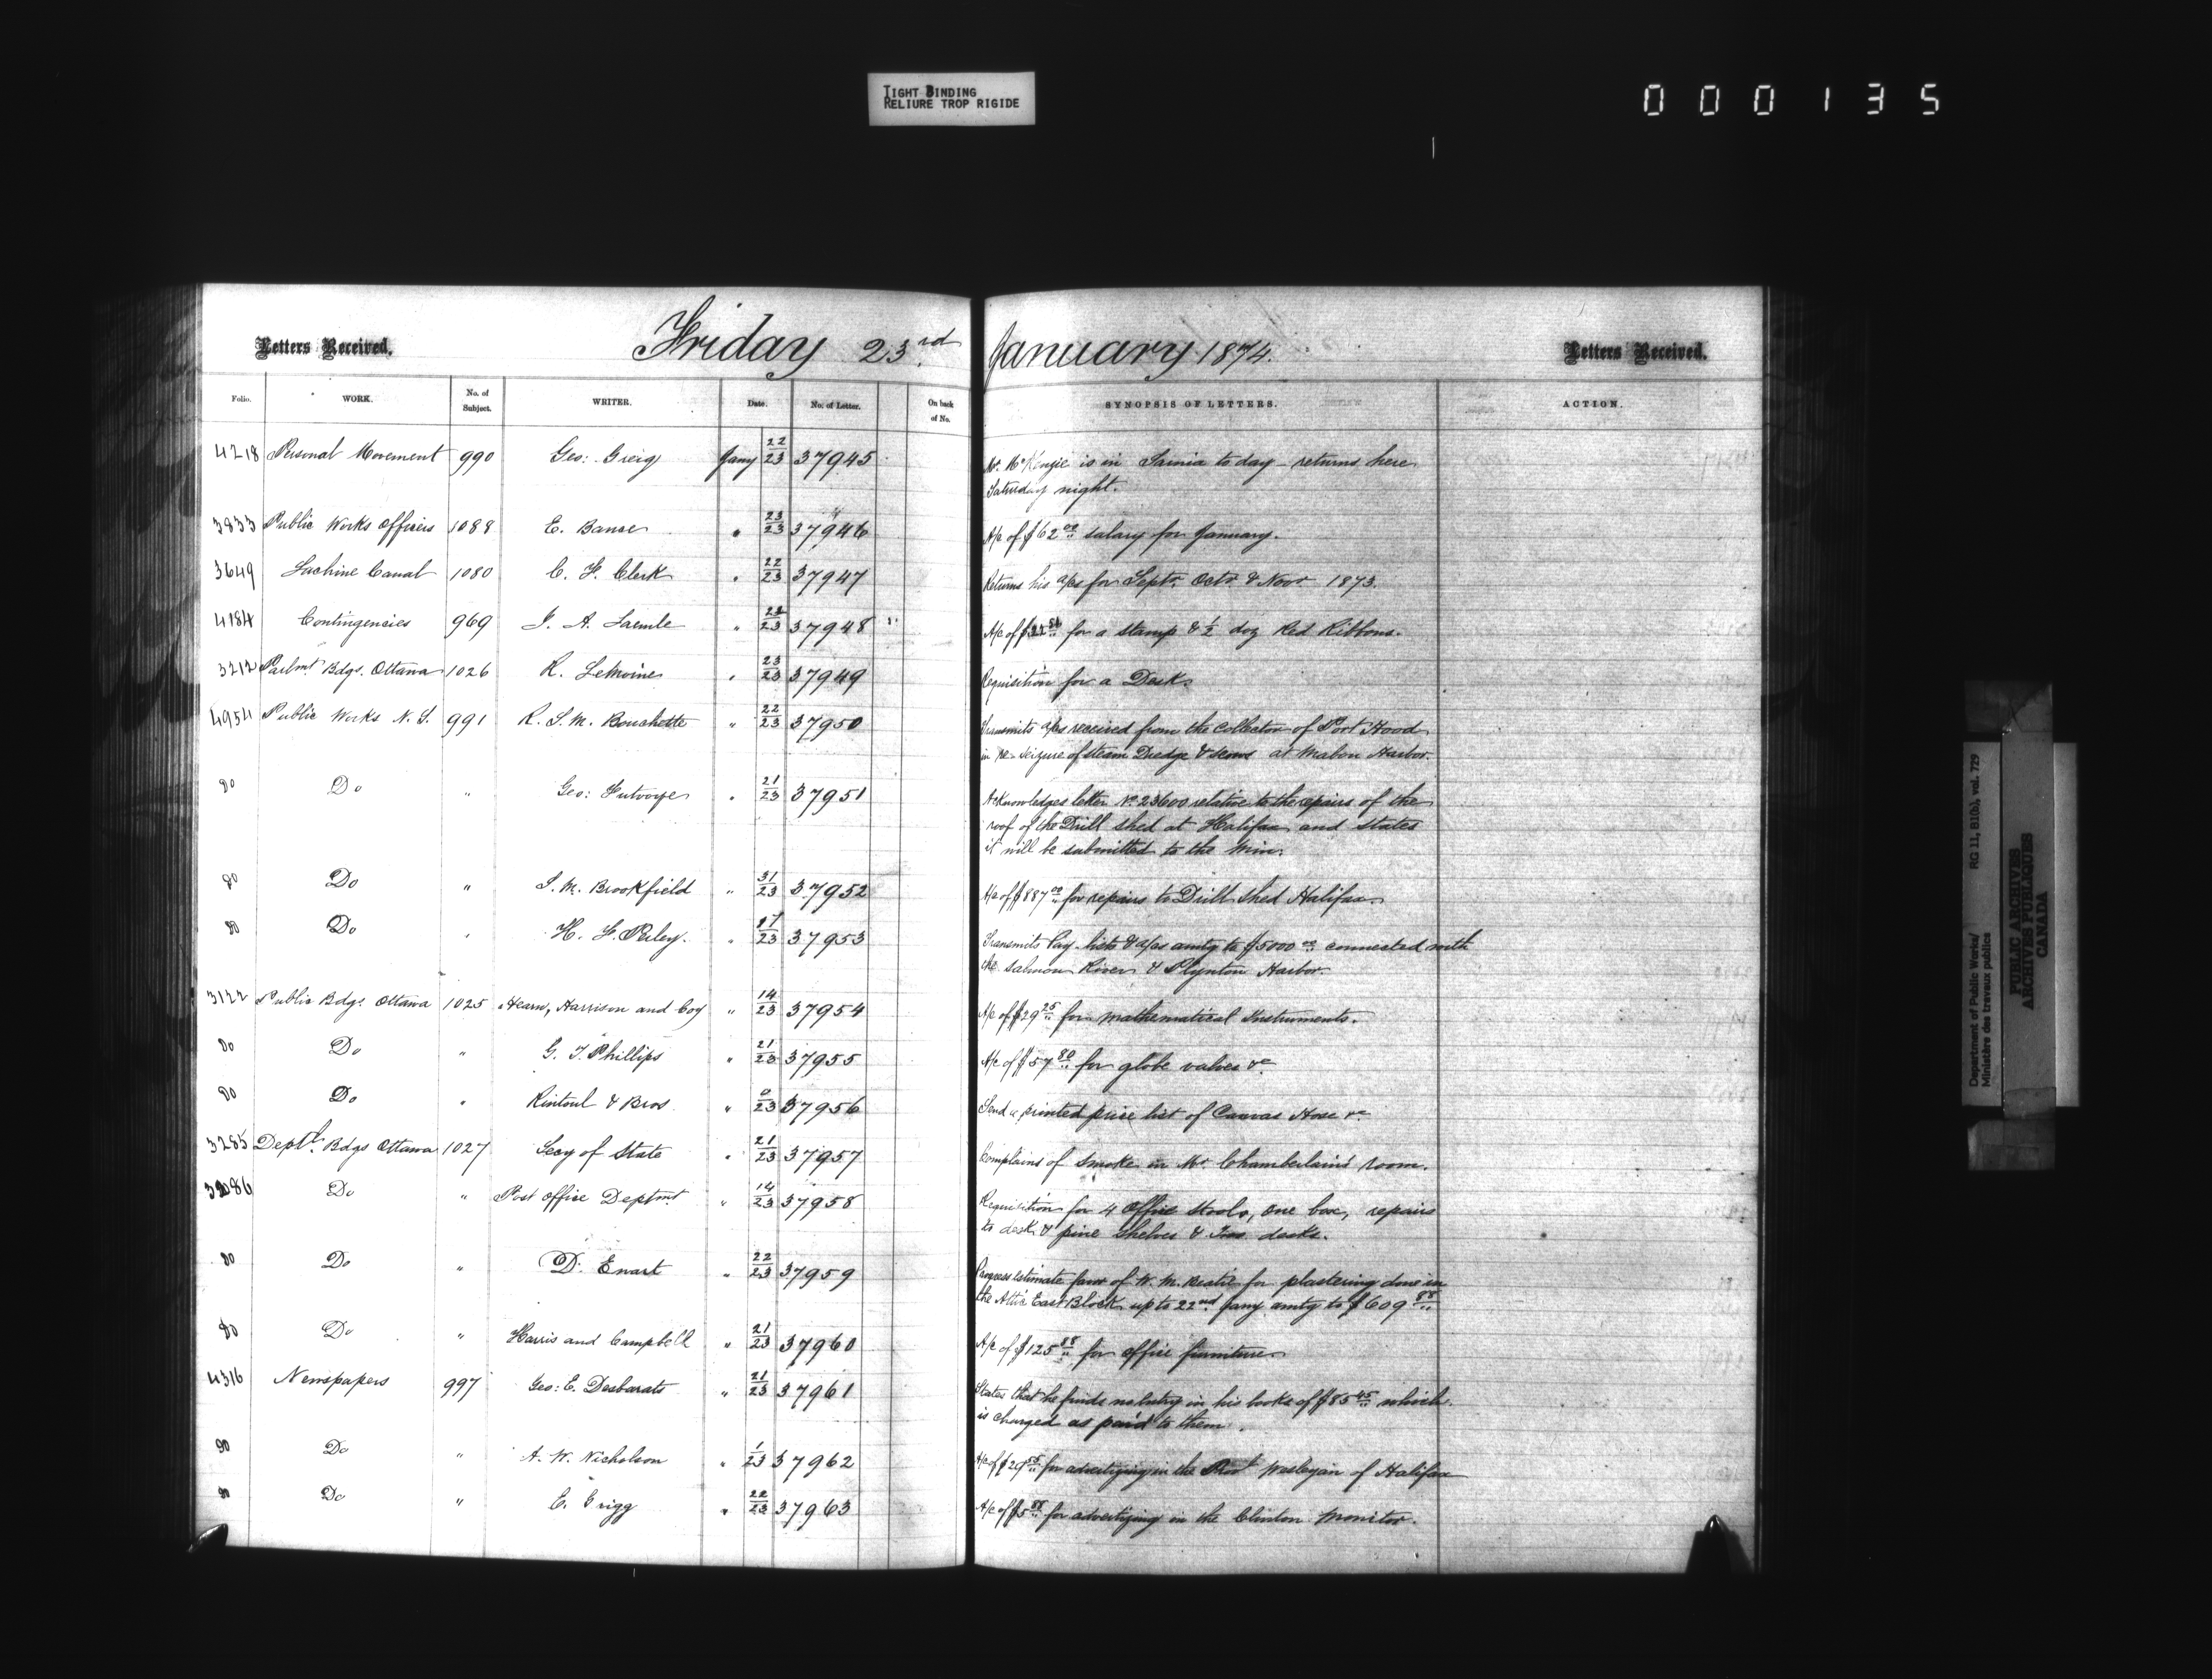 TIGHT BINDING
RELIURE TROP RIGIDE
0 0 0 1 3 5
Letters Received. Friday 23rd January 1874. Letters Received.
Folio. WORK. No. of Subject. WRITER. Date. No. of Letter. On back of No. SYNOPSIS OF LETTERS. ACTION.
4218 Personal Movement 990 Geo: Greig Jany 22/23 37945 Mr. McKenzie is in Sarnia to day - returns here
Saturday night.
3833 Public Works Officers 1088 E. " 23/23 37946 A/c of $62.00 salary for January.
3649 Lachine Canal 1080 C. F. Clerk " 22/23 37947 Returns his a/cs for Septr. Octr. & Novr 1873.
4184 Contingencies 969 J. A. " 37948 A/c of for a stamp & 1/2 doz Red Ribbons.
3212 Parlmt. Bdgs. Ottawa 1026 R. LeMoine " 23/23 37949 Requisition for a Desk.
4954 Public Works N. S. 991 R. S. M. Bouchette " 22/23 37950 Transmits a/cs received from the Collector of Port Hood
in re- seizure of steam Dredge & scows at Mabou Harbor.
Do Do " Geo: Futvoye " 21/23 37951 Acknowledges letter No. 23600 relative to the repairs of the
roof of the Drill shed at Halifax and states
it will be submitted to the Min.
Do Do " S. M. Brookfield " 31/23 37952 A/c of $887.00 for repairs to Drill Shed Halifax.
Do Do " H. F. Perley. " 17/23 37953 Transmits Pay-lists & a/cs amtg to $5000.00 connected with
the Salmon River & Harbor
3122 Public Bdgs. Ottawa 1025 Hearn, Harrison and Coy " 14/23 37954 A/c of $29.25 for mathematical Instruments.
Do Do " G. T. Phillips " 21/23 37955 A/c of $57.80 for globe valves &c
Do Do " Rintoul & Bros " 0/23 37956 Send a printed price list of Canvas Hose &c
3285 Deptl. Bdgs Ottawa 1027 Secy of State " 21/23 37957 Complains of smoke in Mr Chamberlain's room.
Do " Post Office Deptmt. " 14/23 37958 Requisition for 4 Office Stools, one box, repairs
to desk & pine shelves & desks.
Do Do " D. Ewart " 22/23 37959 Progress Estimate favr of W. M. for plastering done in
the Attic East Block up to 22nd Jany amtg to $609.88
Do Do " Harris and Campbell " 21/23 37960 A/c of $125.88 for office furniture
4316 Newspapers 997 Geo: E. Desbarats " 21/23 37961 States that he finds no entry in his books of $85.45 which
is charged as paid to them.
Do Do " A. W. Nicholson " 1/23 37962 A/c of for advertizing in the Wesleyan of Halifax
Do Do " E. " 22/23 37963 A/c of for advertizing in the Clinton Monitor.
Department of Public Works/ RG 11, B1(b), vol. 729
Ministère des travaux publics
PUBLIC ARCHIVES
ARCHIVES PUBLIQUES
CANADA